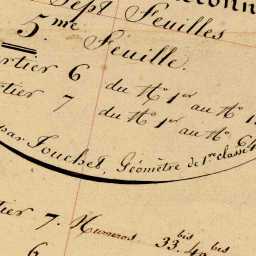 Sept Feuilles
5.me Feuille.
rtier 6 du No 1er au No 1
tier 7 du No 1er au No 64
par Jouchet, Géomètre de 1re classe
tier 7. Numeros 33.bis 40bis
6